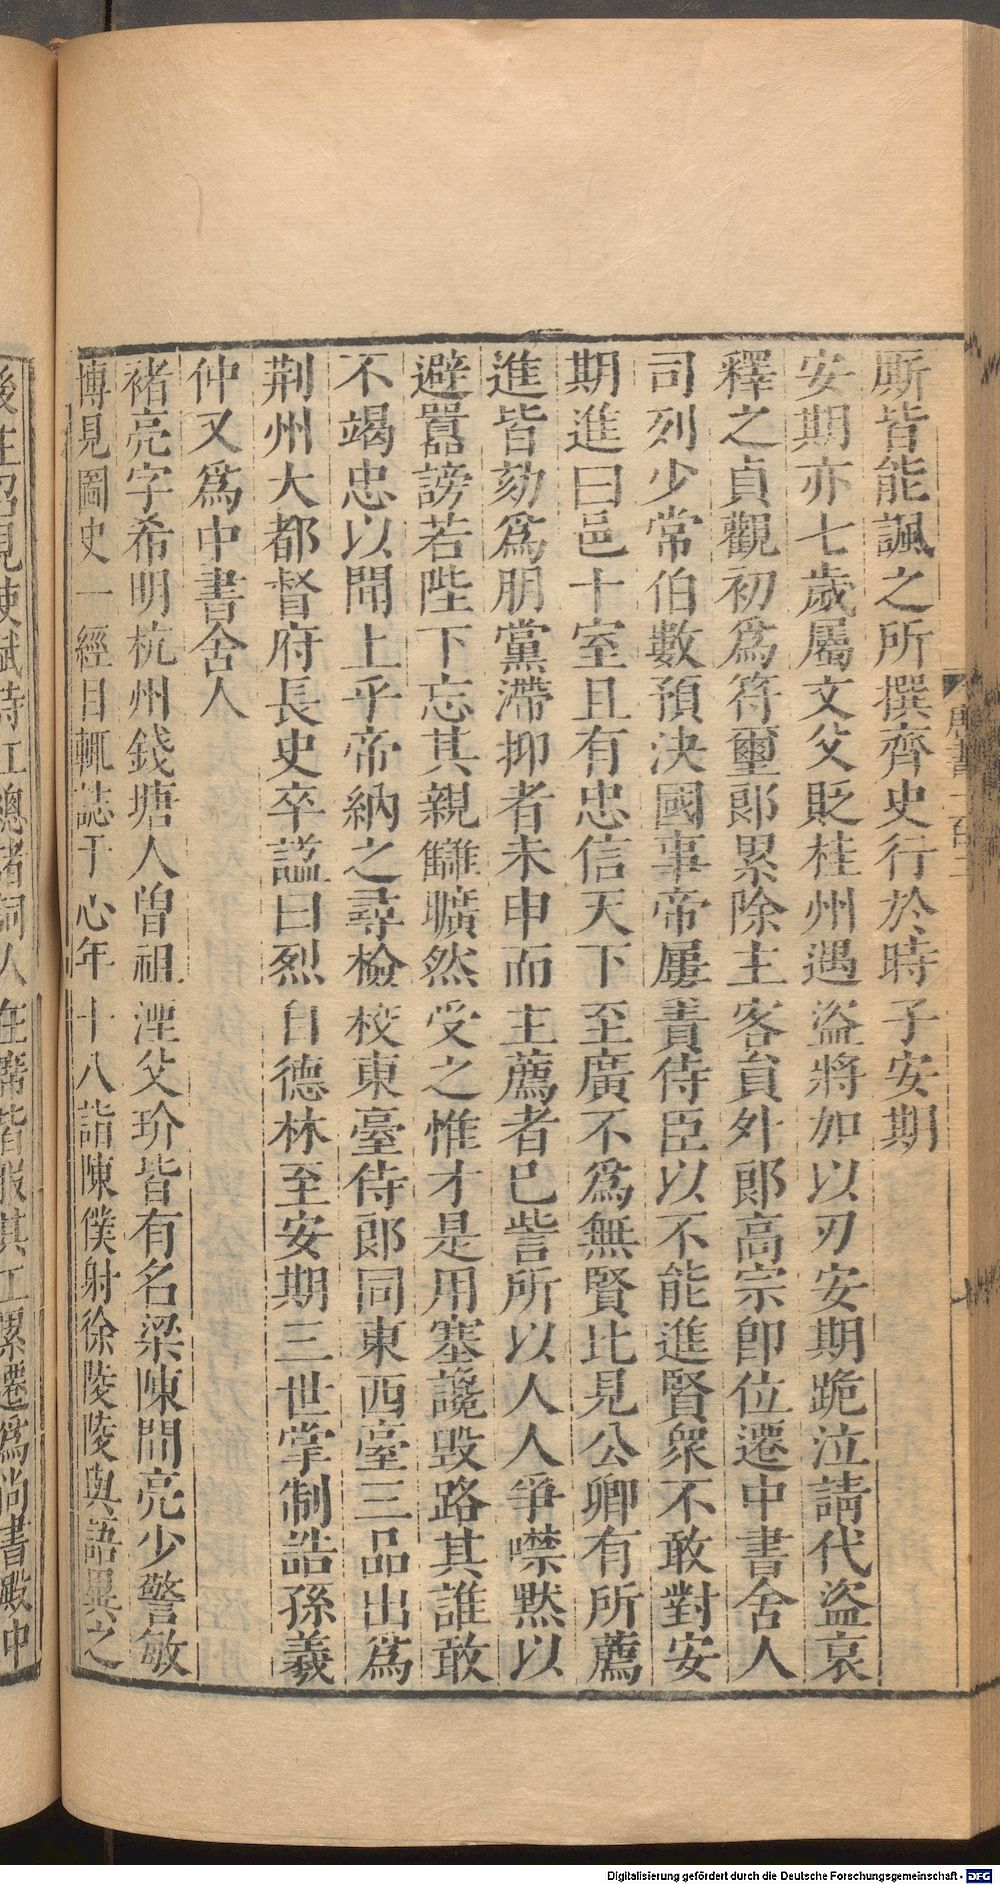 厮皆能諷之所撰齊史行於時子安期
安期亦七歲屬文父貶桂州遇盜將加以刃安期跪泣請代盜哀
釋之貞觀初爲符璽郎累除主客員外郎高宗卽位遷中書舍人
司列少常伯數預決國事帝屢責侍臣以不能進賢衆不敢對安
期進曰邑十室且有忠信天下至廣不爲無賢比見公卿有所薦
進皆劾爲朋黨滯抑者未申而主薦者已訾所以人人爭噤默以
避囂謗若陛下忘其親讎曠然受之惟才是用塞讒毀路其誰敢
不竭忠以聞上乎帝納之尋檢校東臺侍郎同東西臺三品出爲
荆州大都督府長史卒謚曰烈自德林至安期三世掌制誥孫羲
仲又爲中書舍人
褚亮字希明杭州錢塘人曾祖湮父玠皆有名梁陳間亮少警敏
博見圖史一經目輒誌于心年十八詣陳僕射徐陵陵與語異之
後主召見使賦詩江總諸詞人在席皆服其工累遷爲尚書殿中
唐書一百二
Digitalisierung gefördert durch die Deutsche Forschungsgemeinschaft - DFG